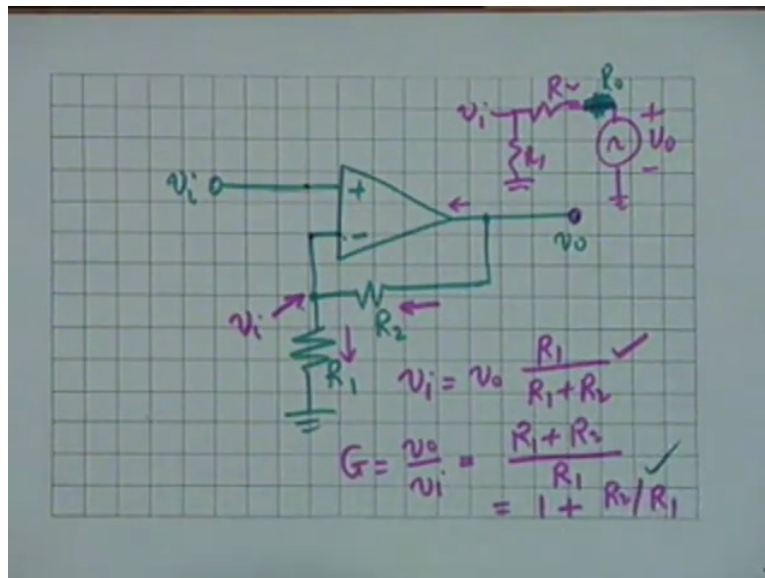 R₂ R₀
vᵢ
R₁
+
~ V₀
-
vᵢ +
-
v₀
vᵢ R₂
R₁
vᵢ = v₀ R₁ / (R₁ + R₂) ✓
G = v₀ / vᵢ = (R₁ + R₂) / R₁ ✓
= 1 + R₂/R₁